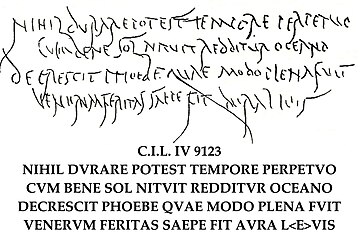 NIHIL DURARE POTEST TEMPORE PERPETUO
CUM BENE SOL NITUIT REDDITUR OCEANO
DECRESCIT PHOEBE QUAE MODO PLENA FUIT
VENERUM FERITAS SAEPE FIT AURA LUIS
C.I.L. IV 9123
NIHIL DVRARE POTEST TEMPORE PERPETVO
CVM BENE SOL NITVIT REDDITVR OCEANO
DECRESCIT PHOEBE QVAE MODO PLENA FVIT
VENERVM FERITAS SAEPE FIT AVRA L<E>VIS